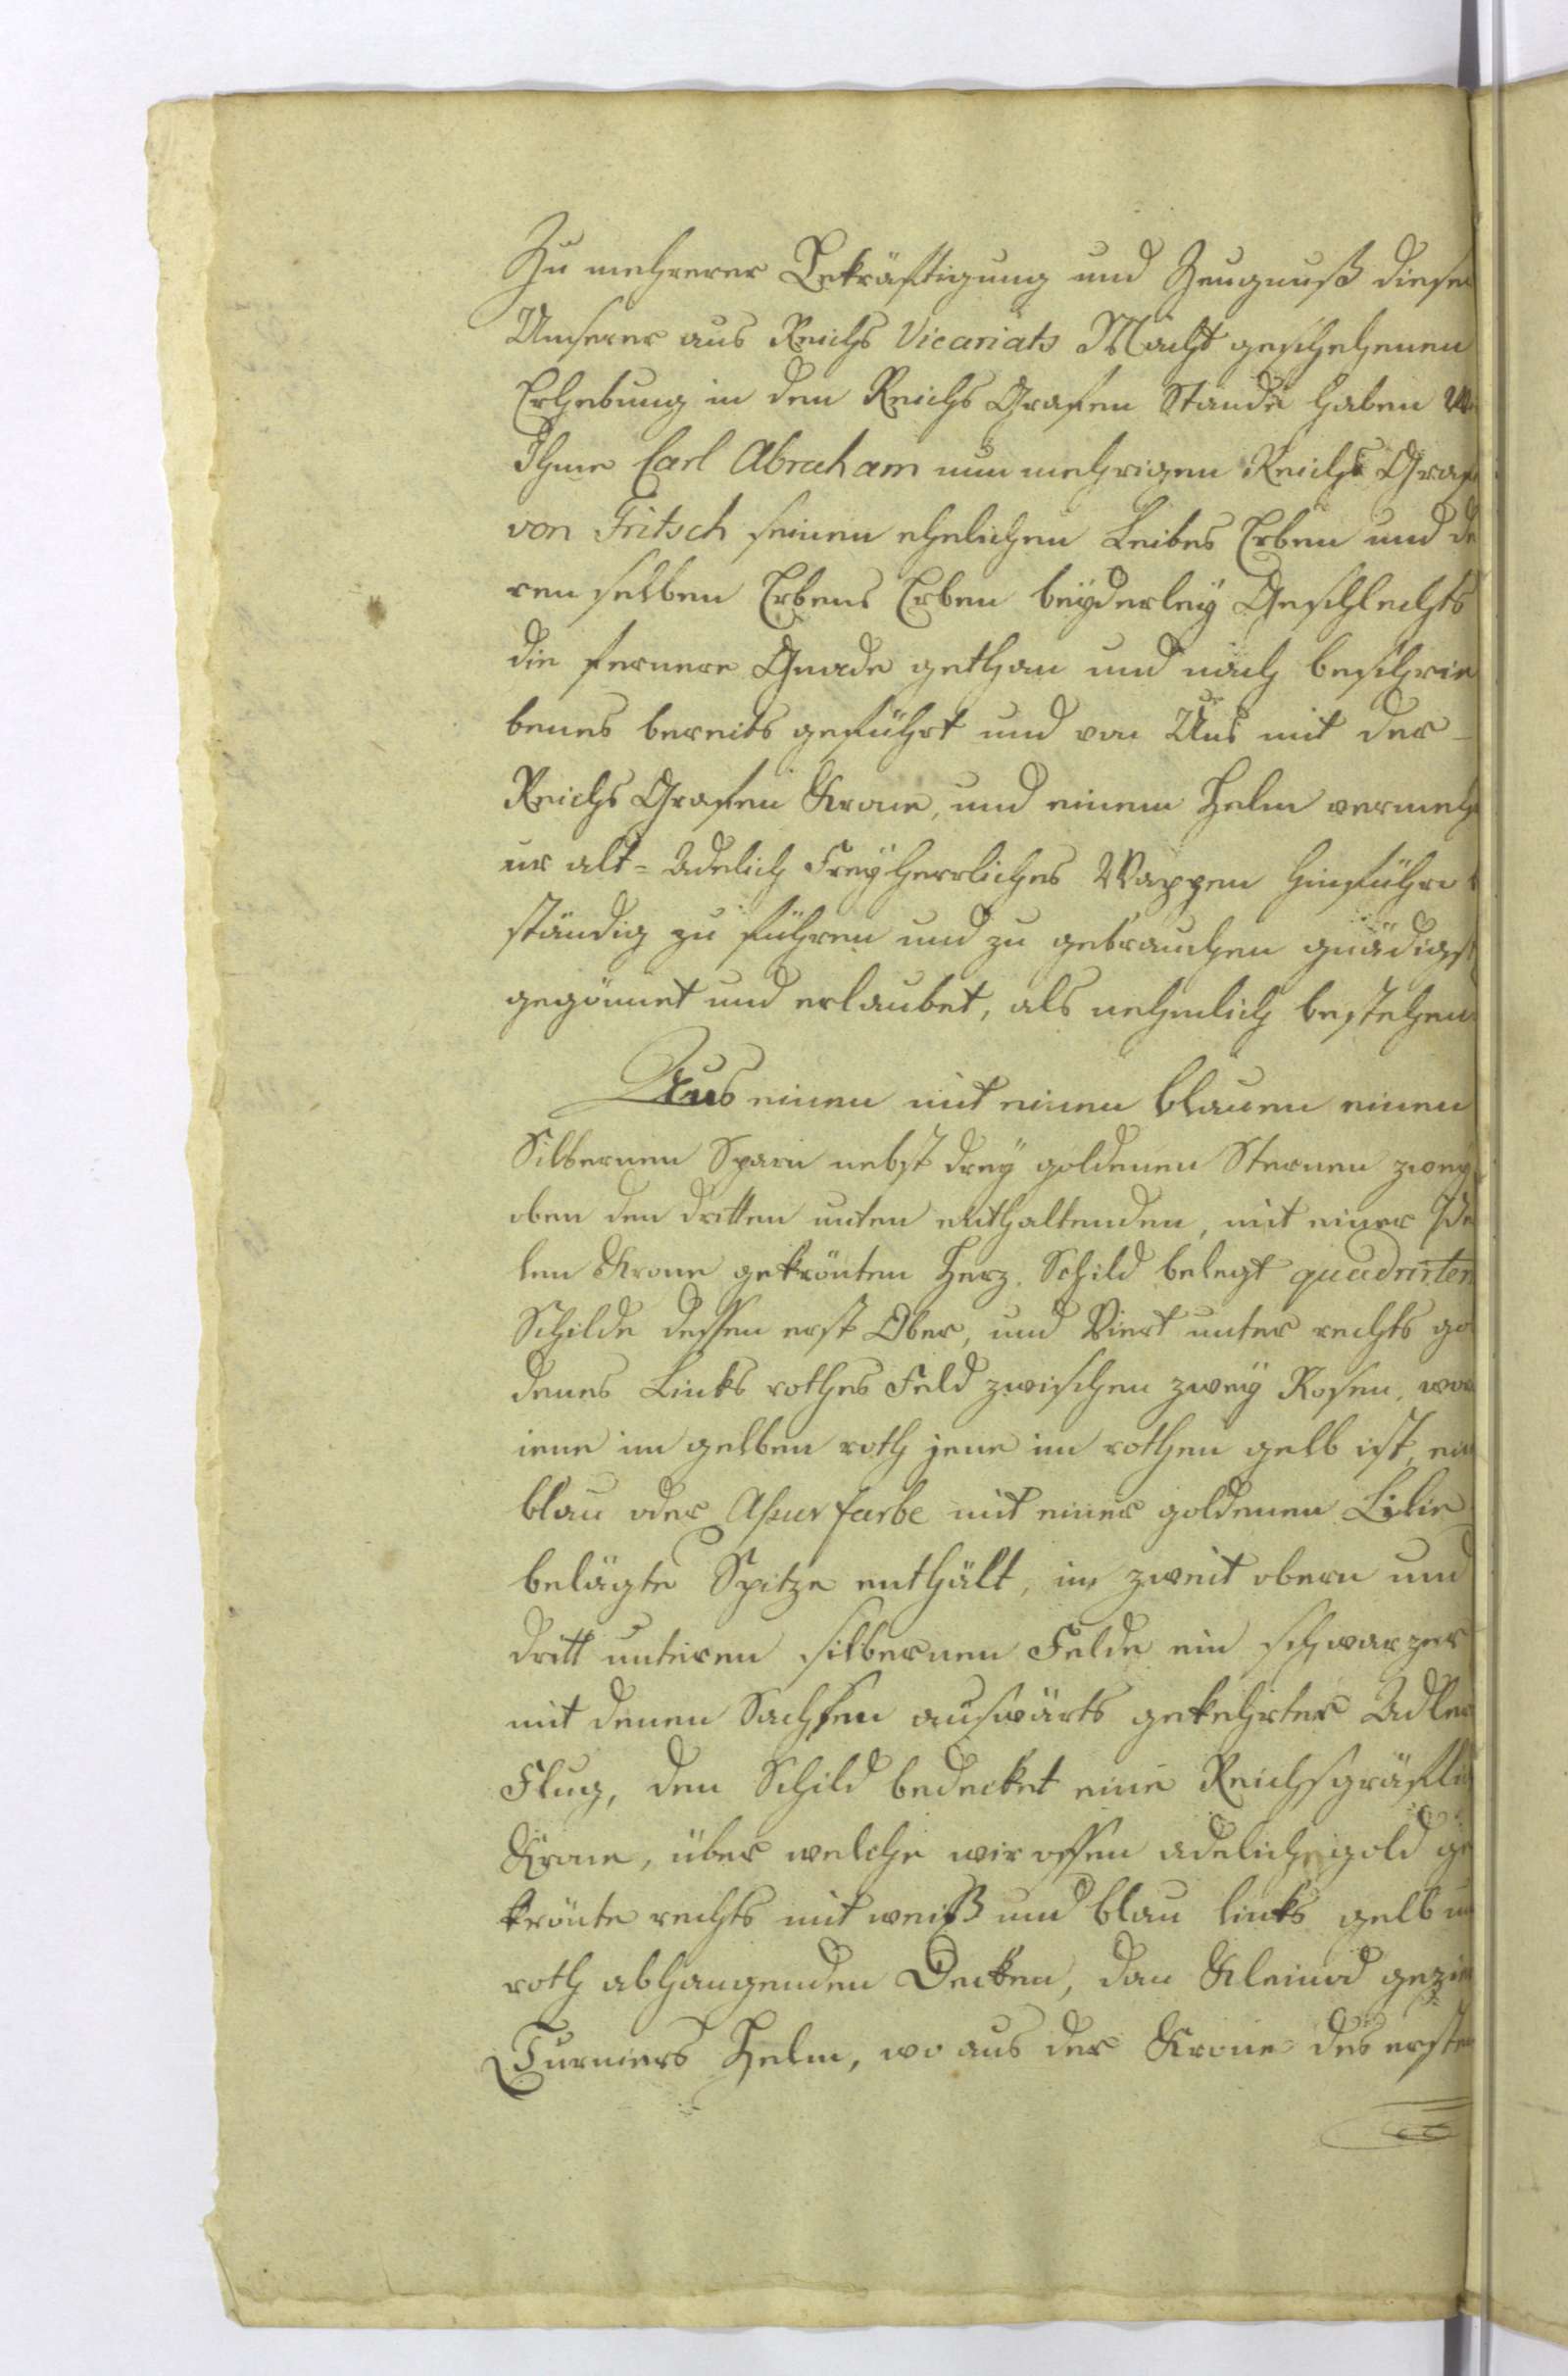 Zu mehrerer Bekräftigung und Zeugnuß dieser
Unserer aus Reichs Vicariats Macht geschehenen
Erhebung in den Reichs Grafen Stande haben W
Ihme Carl Abraham nun mehrigen Reichs Graf
von Fritsch seinen ehelichen Leibes Erben und de
ren selben Erbens Erben beyderley Geschlechts
die fernere Gnade gethan und nach beschrie
benes bereits geführt und von Uns mit der
Reichs Grafen Krone, und einem Helm vermeh
ur alt-Adelich Freyherrliches Wappen hinführ
ständig zu führen und zu gebrauchen gnädigst
gegönnet und erlaubet, als nehmlich bestehen
Aus einen mit einen blauen einen
Silbernen Sparn nebst drey goldenen Sternen zwey
oben den dritten unten enthaltenden, mit einer
len Krone gekrönten Herz. Schild belegt quadrirten
Schilde dessen erst Ober, und Viert unter rechts gol
denes Links rothes Feld zwischen zwey Rosen, wov
iene im gelben roth jene im rothen gelb ist, ein
blau oder Asur farbe mit einer goldenen Lilie
belägte Spitze enthält, im zweit obern und
dritt unteren silbernen Felde ein schwarzer
mit denen Sachsen auswärts gekehrter Adler
Flug, den Schild bedecket eine Reichsgräflich
Krone, über welche wir offen adeliche gold ge
krönte rechts mit weiß und blau links gelb un
roth abhangenden Decken, dan Kleinod gezie
Turniers Helm, wo aus der Krone des ersten